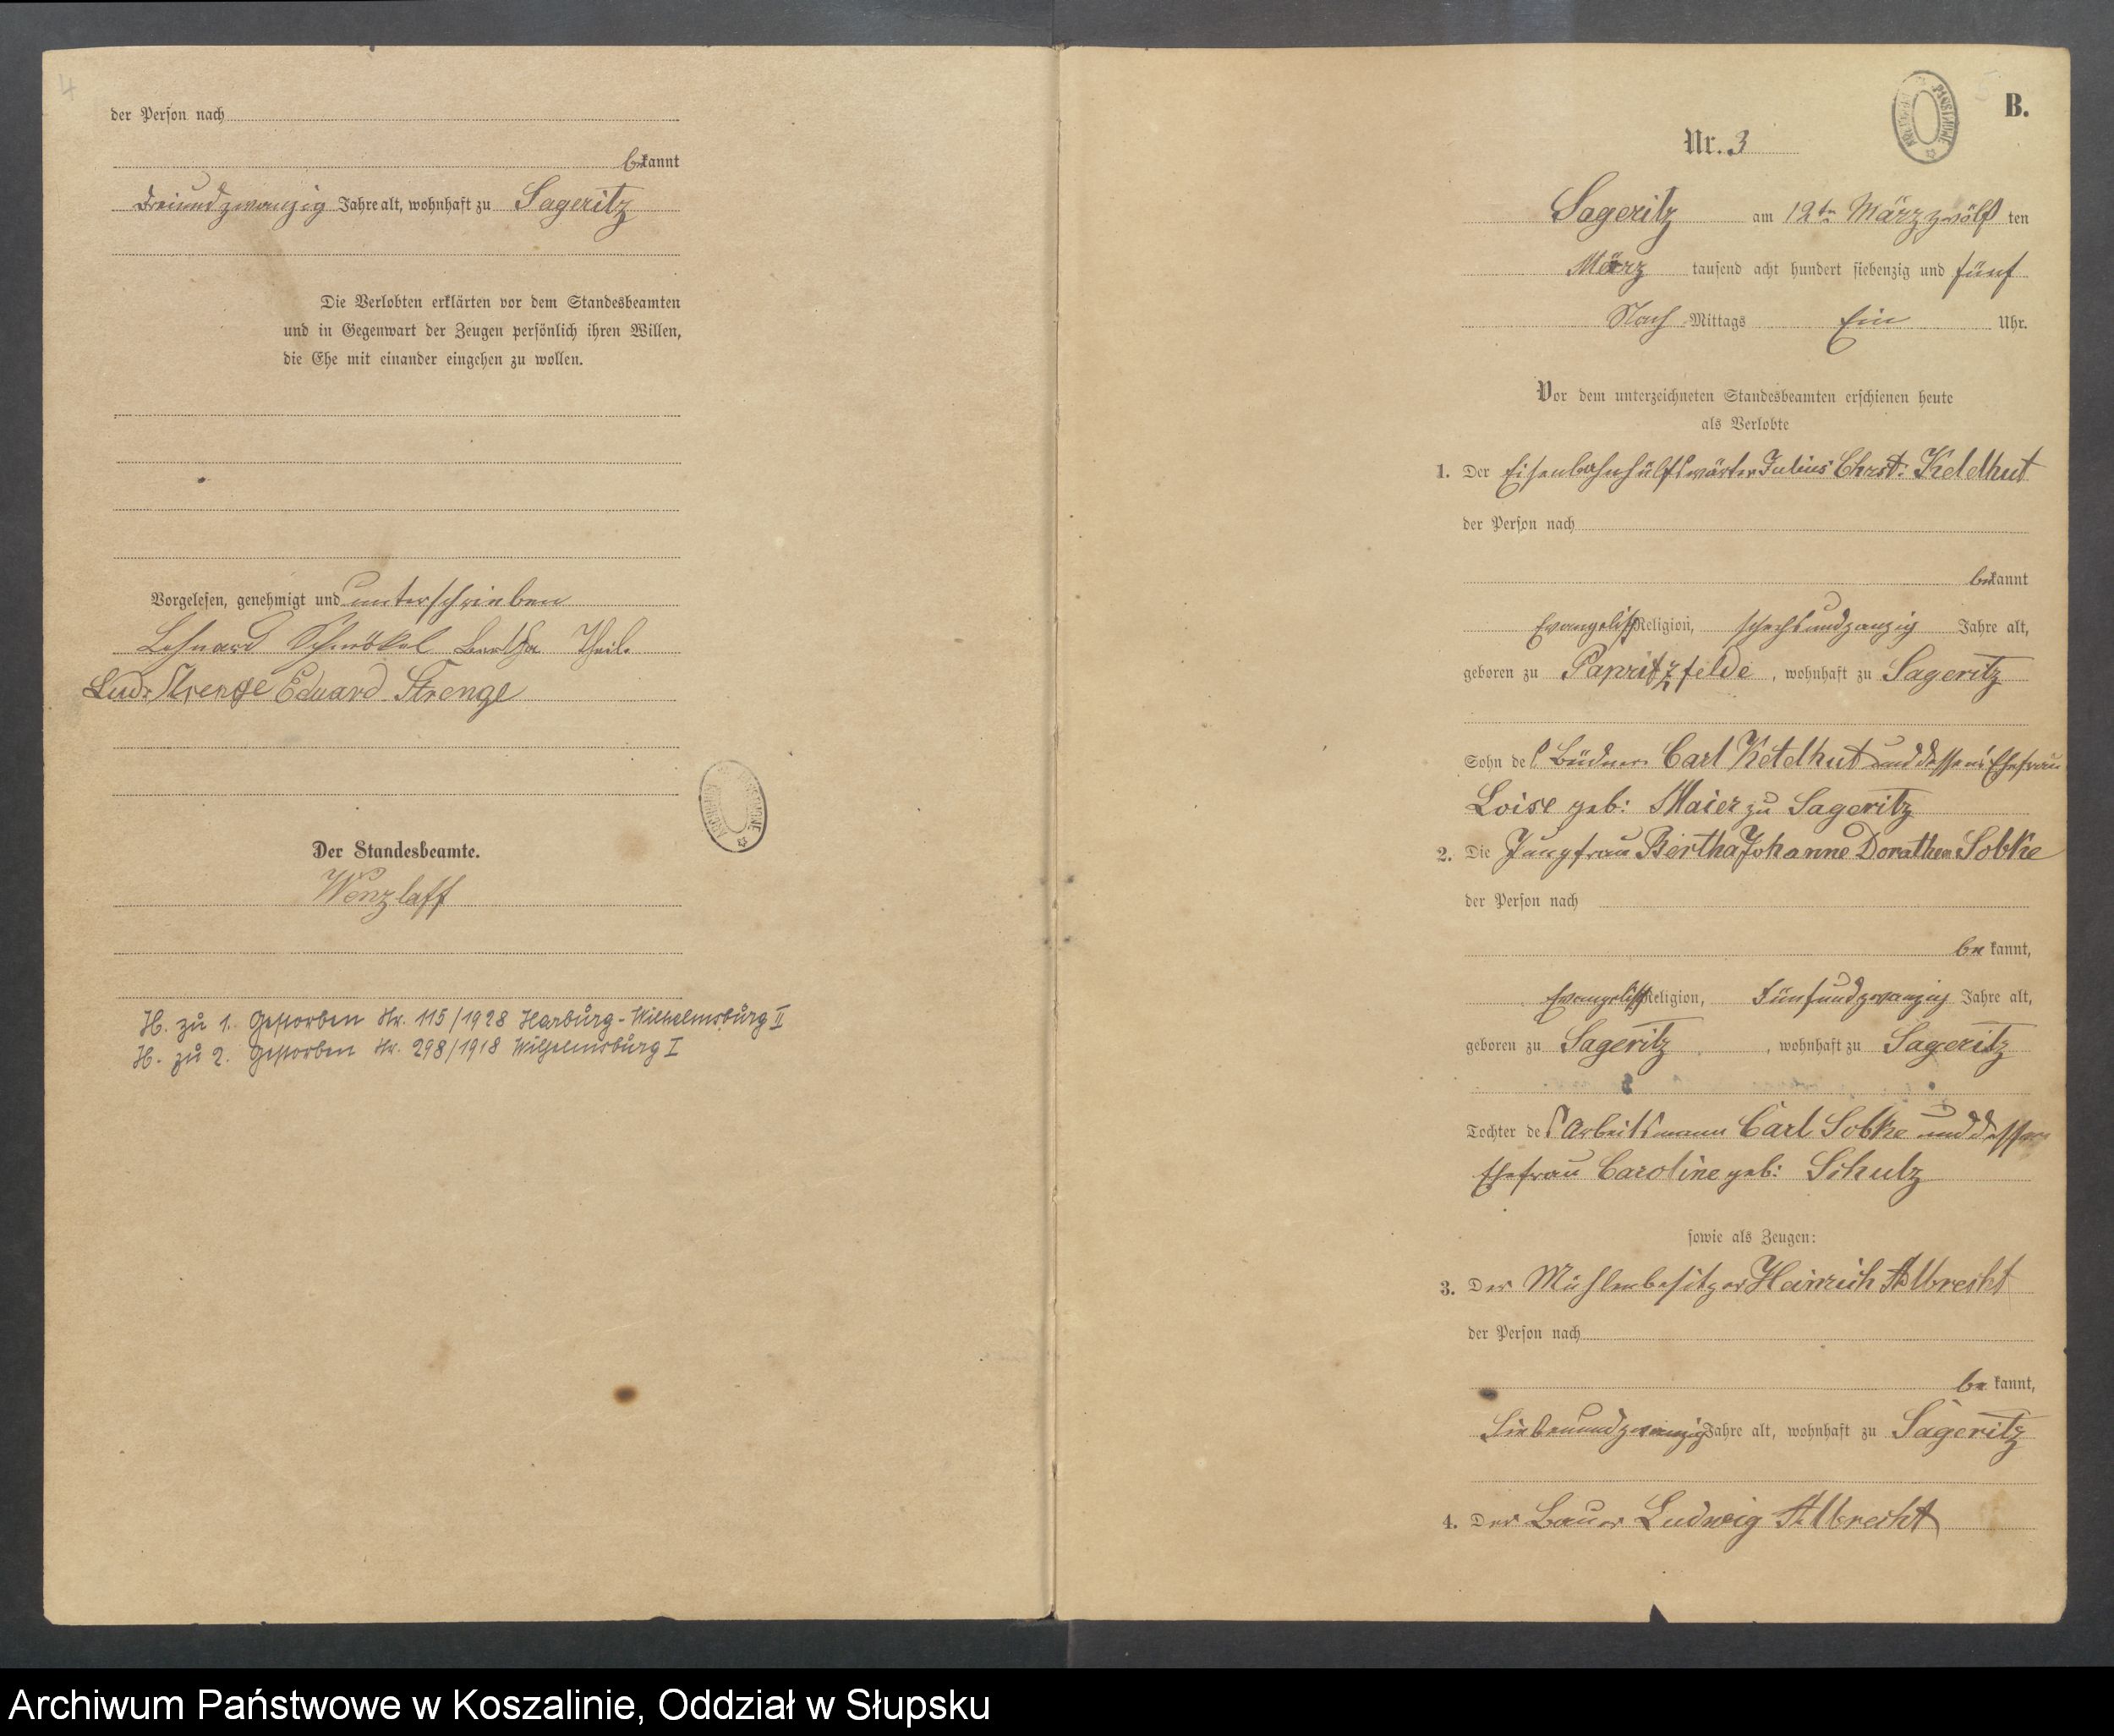 4
der Person nach
bekannt
Dreiundzwanzig Jahre alt, wohnhaft zu Sageritz
Die Verlobten erklärten vor dem Standesbeamten
und in Gegenwart der Zeugen persönlich ihren Willen,
die Ehe mit einander eingehen zu wollen.
Vorgelesen, genehmigt und unterschrieben
Schnökel Bertha Theil.
Ludr Strenge Eduard Strenge
Der Standesbeamte.
Wenzlaff
H. zu 1. Gestorben Nr. 115/1928 Harburg-Wilhelmsburg II
H. zu 2. Gestorben Nr. 298/1918 Wilhelmsburg I
B.
Nr. 3
Sageritz am 12ten März zwölf ten
März tausend acht hundert siebenzig und fünf
Nach Mittags Ein Uhr.
Vor dem unterzeichneten Standesbeamten erschienen heute
als Verlobte
1. Der Eisenbahnhülfswärter Julius Christ. Ketelhut
der Person nach
bekannt
Evangelisch Religion, sechsundzanzig Jahre alt,
geboren zu Papritzfelde, wohnhaft zu Sageritz
Sohn des Büdner Carl Ketelhut und dessen Ehefrau
Loise geb: Maier zu Sageritz
2. Die Jungfrau Bertha Johanne Dorathea Sobke
der Person nach
be kannt,
Evangelisch Religion, Fünfundzwanzig Jahre alt,
geboren zu Sageritz, wohnhaft zu Sageritz
Tochter des Arbeitsmann Carl Sobke und dessen
Ehefrau Caroline geb: Schulz
sowie als Zeugen:
3. Der Mühlenbesitzer Heinrich Albrecht
der Person nach
be kannt,
Siebenundzwanzig Jahre alt, wohnhaft zu Sageritz
4. Der Bauer Ludwig Albrecht
Archiwum Państwowe w Koszalinie, Oddział w Słupsku